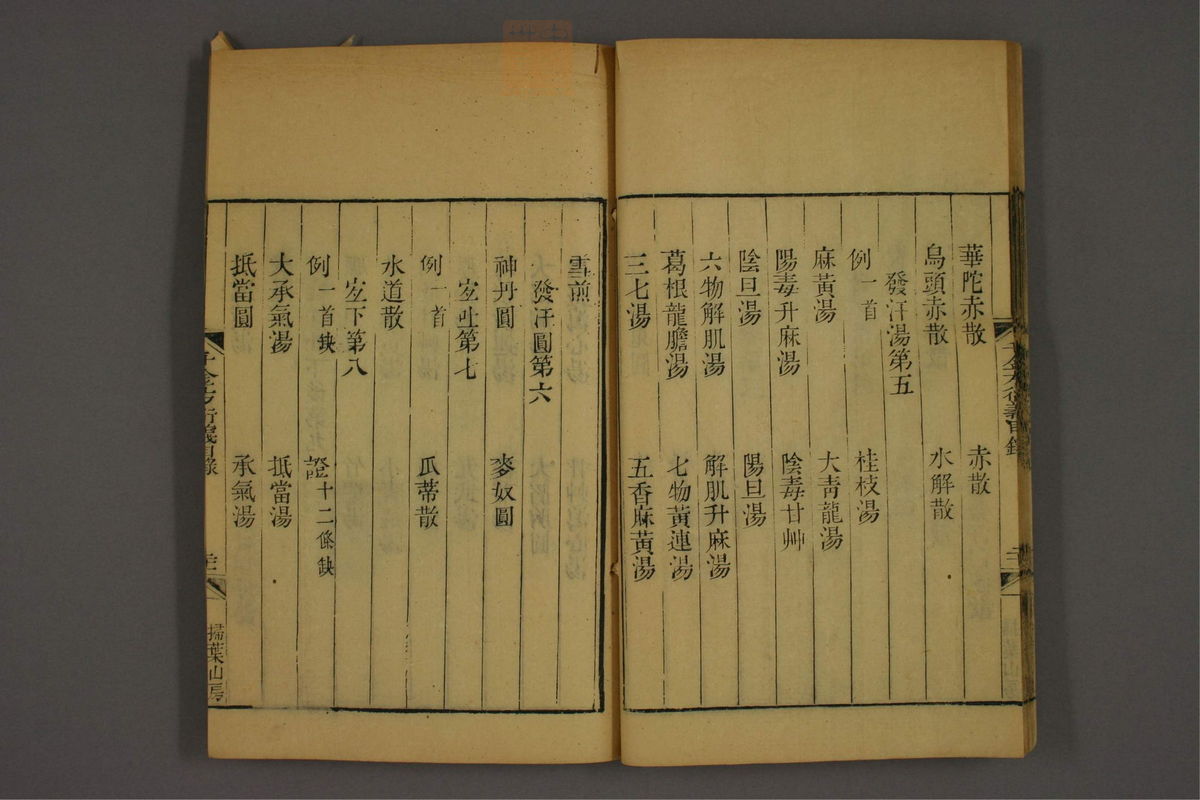 華陀赤散　赤散
烏頭赤散　水解散
發汗湯第五
例一首　桂枝湯
麻黃湯　大青龍湯
陽毒升麻湯　陰毒甘艸
陰旦湯　陽旦湯
六物解肌湯　解肌升麻湯
葛根龍膽湯　七物黃連湯
三七湯　五香麻黃湯
雪煎
發汗圓第六
神丹圓　麥奴圓
宐吐第七
例一首　瓜蒂散
水道散
宐下第八
例一首缺　證十二條缺
大承氣湯　抵當湯
抵當圓　承氣湯
千金方衍義目錄
掃葉山房